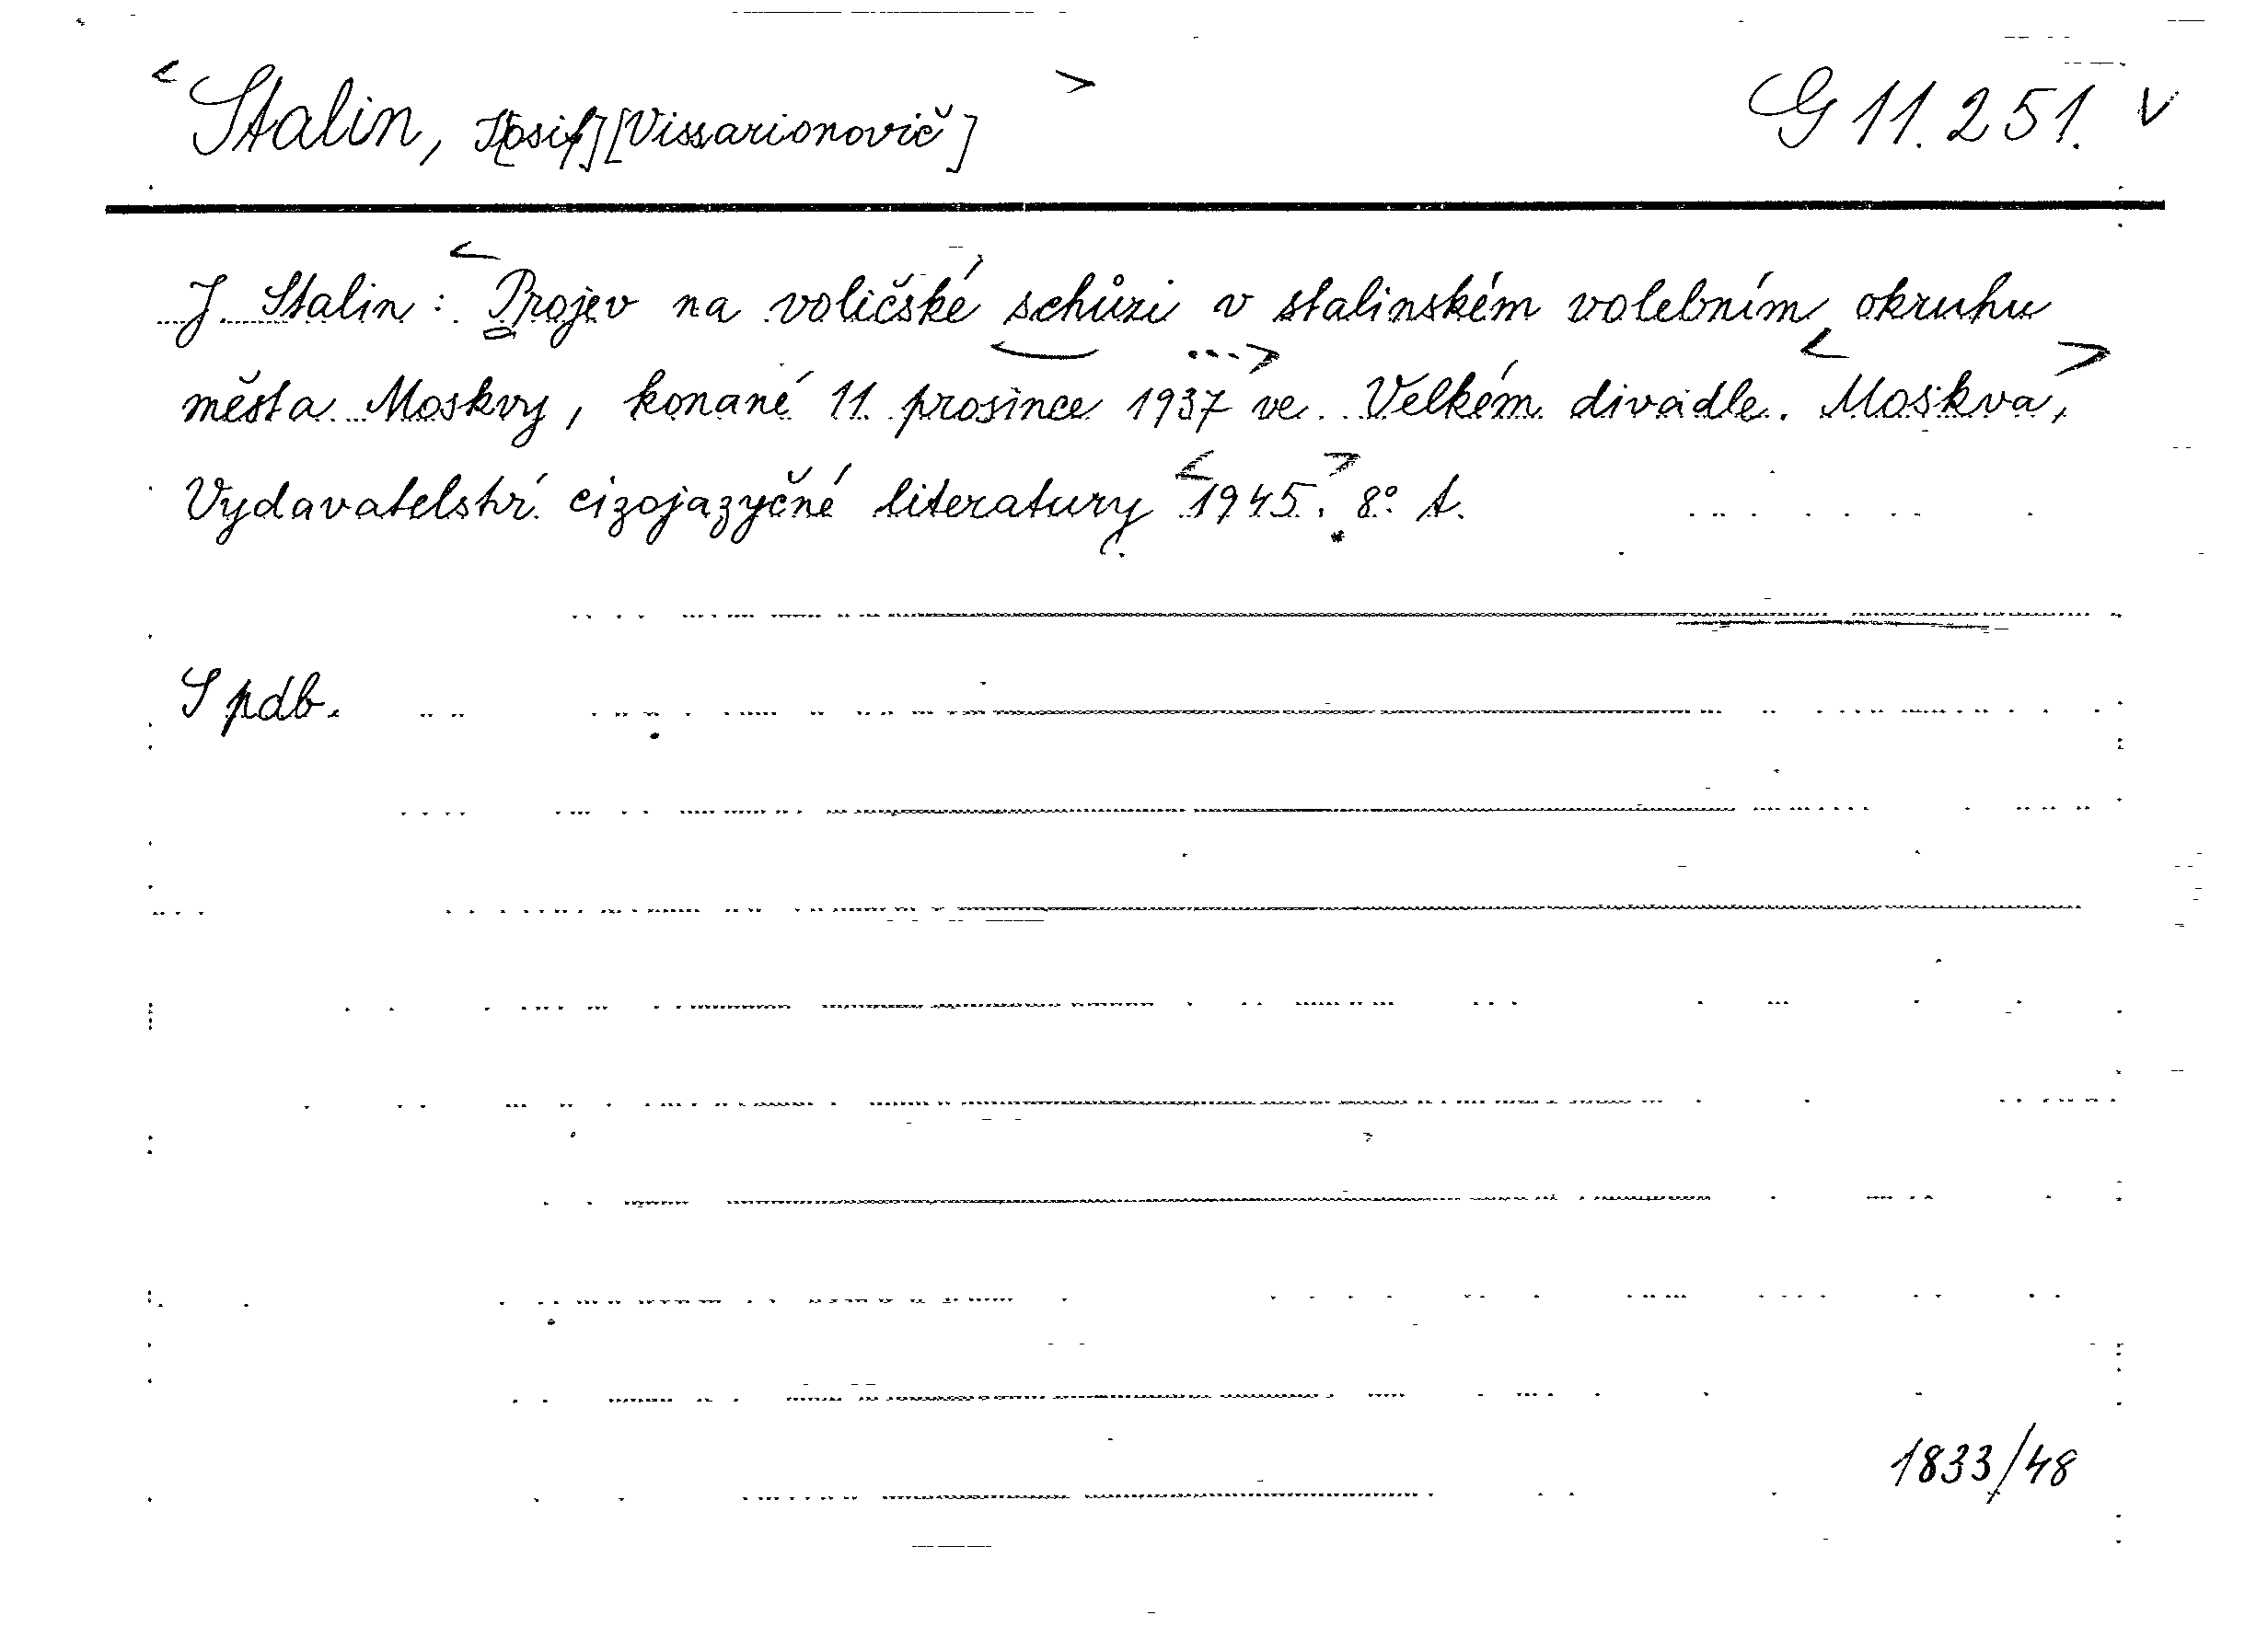 < Stalin, J[osif] [Vissarionovič] > G 11.251. v
J. Stalin: < Projev na voličské schůzi v stalinském volebním okruhu
města Moskvy, konané 11. prosince 1937 ...> ve Velkém divadle. < Moskva, >
Vydavatelství cizojazyčné literatury < 1945. > 8° t.
S pdb.
1833/48